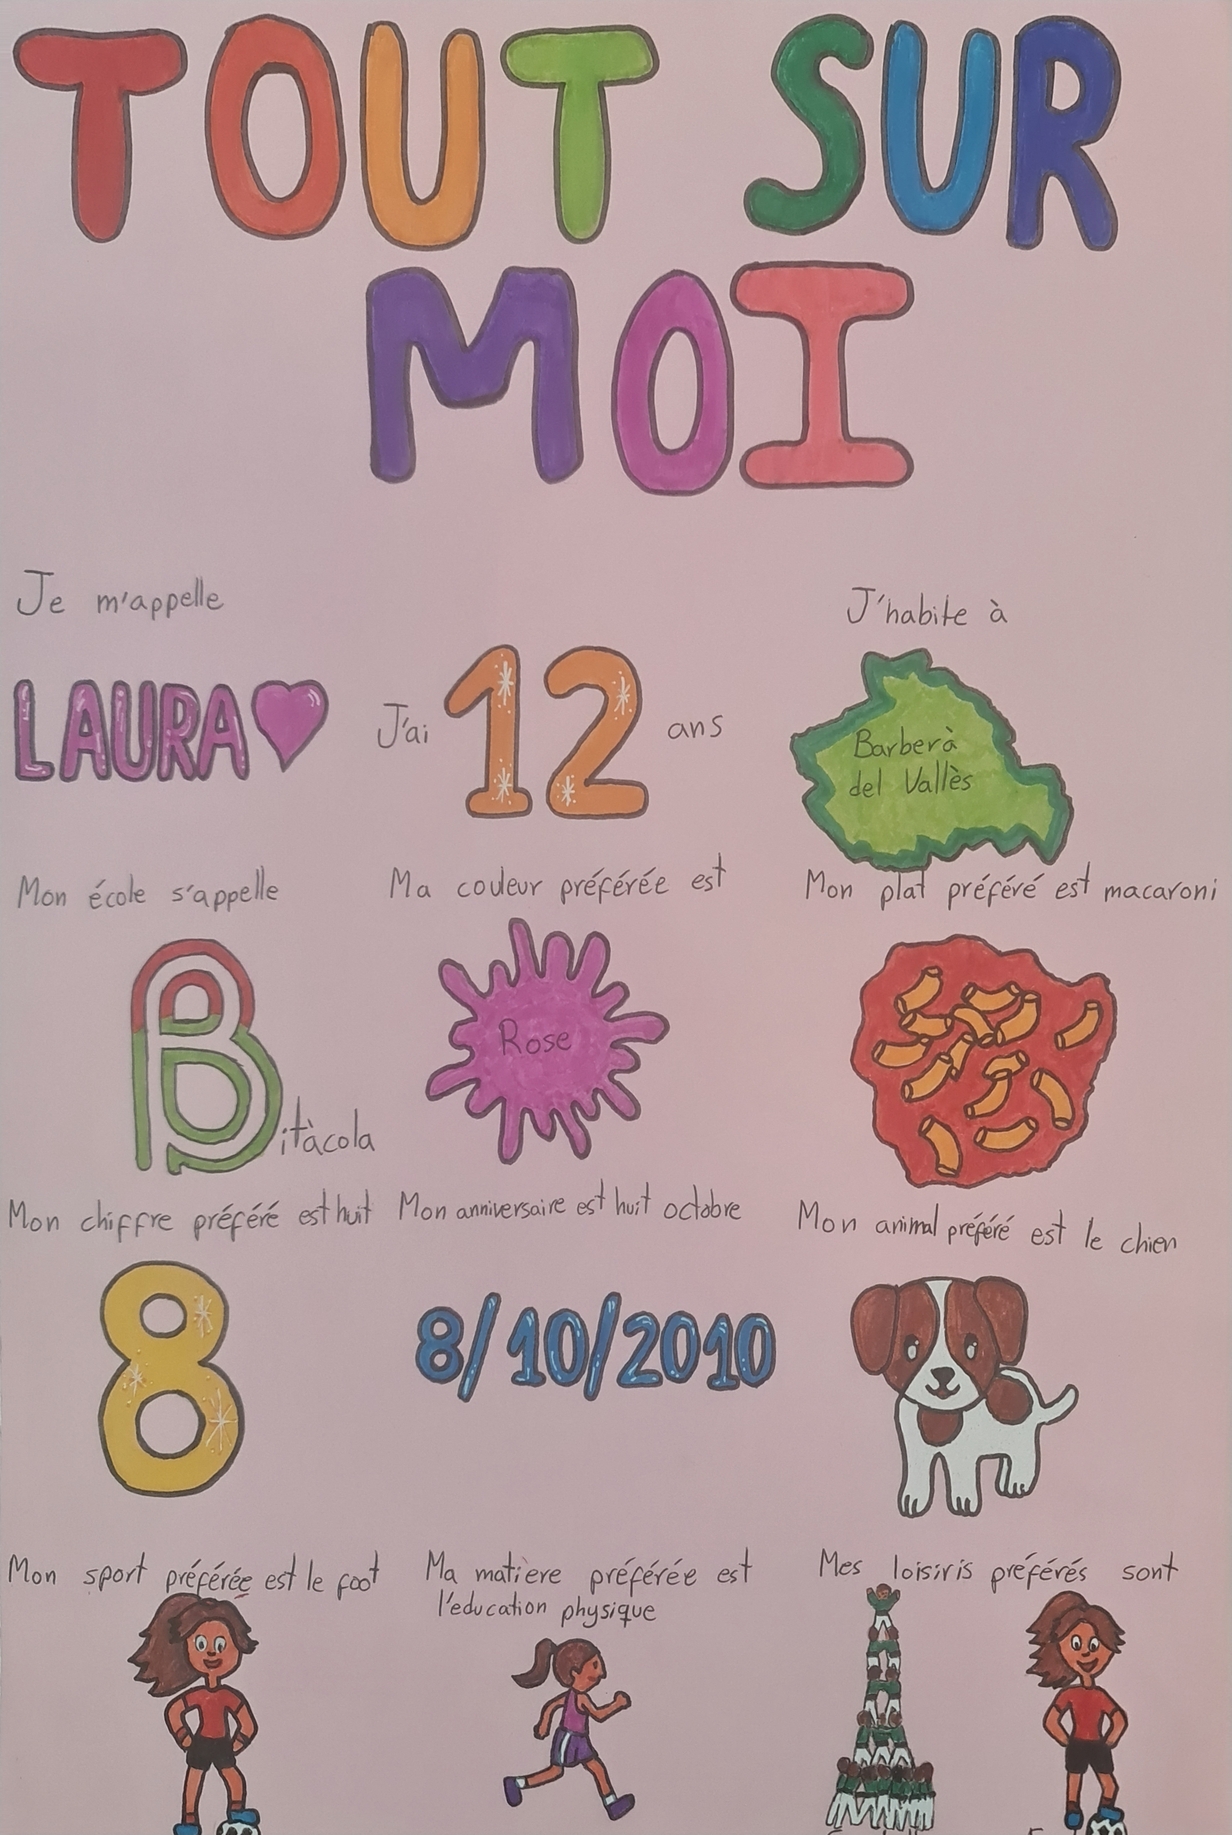 TOUT SUR
MOI
Je m'appelle
LAURA
J'ai 12 ans
J'habite à
Barberà
del Vallès
Mon école s'appelle
Bitàcola
Ma couleur préférée est
Rose
Mon plat préféré est macaroni
Mon chiffre préféré est huit
8
Mon anniversaire est huit octobre
8/10/2010
Mon animal préféré est le chien
Mon sport préférée est le foot
Ma matière préférée est
l'education physique
Mes loisiris préférés sont